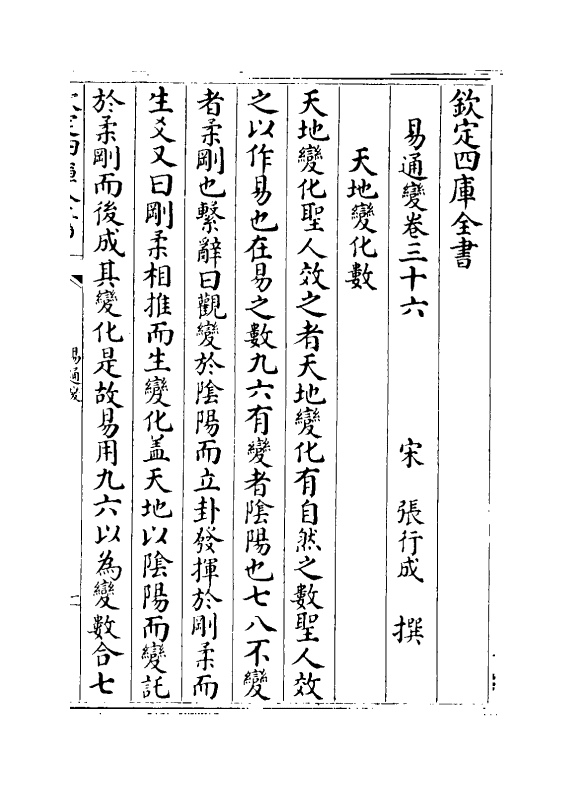 欽定四庫全書
易通變卷三十六
宋　張行成　撰
天地變化數
天地變化聖人效之者天地變化有自然之數聖人效
之以作易也在易之數九六有變者陰陽也七八不變
者柔剛也繫辭曰觀變於陰陽而立卦發揮於剛柔而
生爻又曰剛柔相推而生變化盖天地以陰陽而變託
於柔剛而後成其變化是故易用九六以為變數合七
易通變